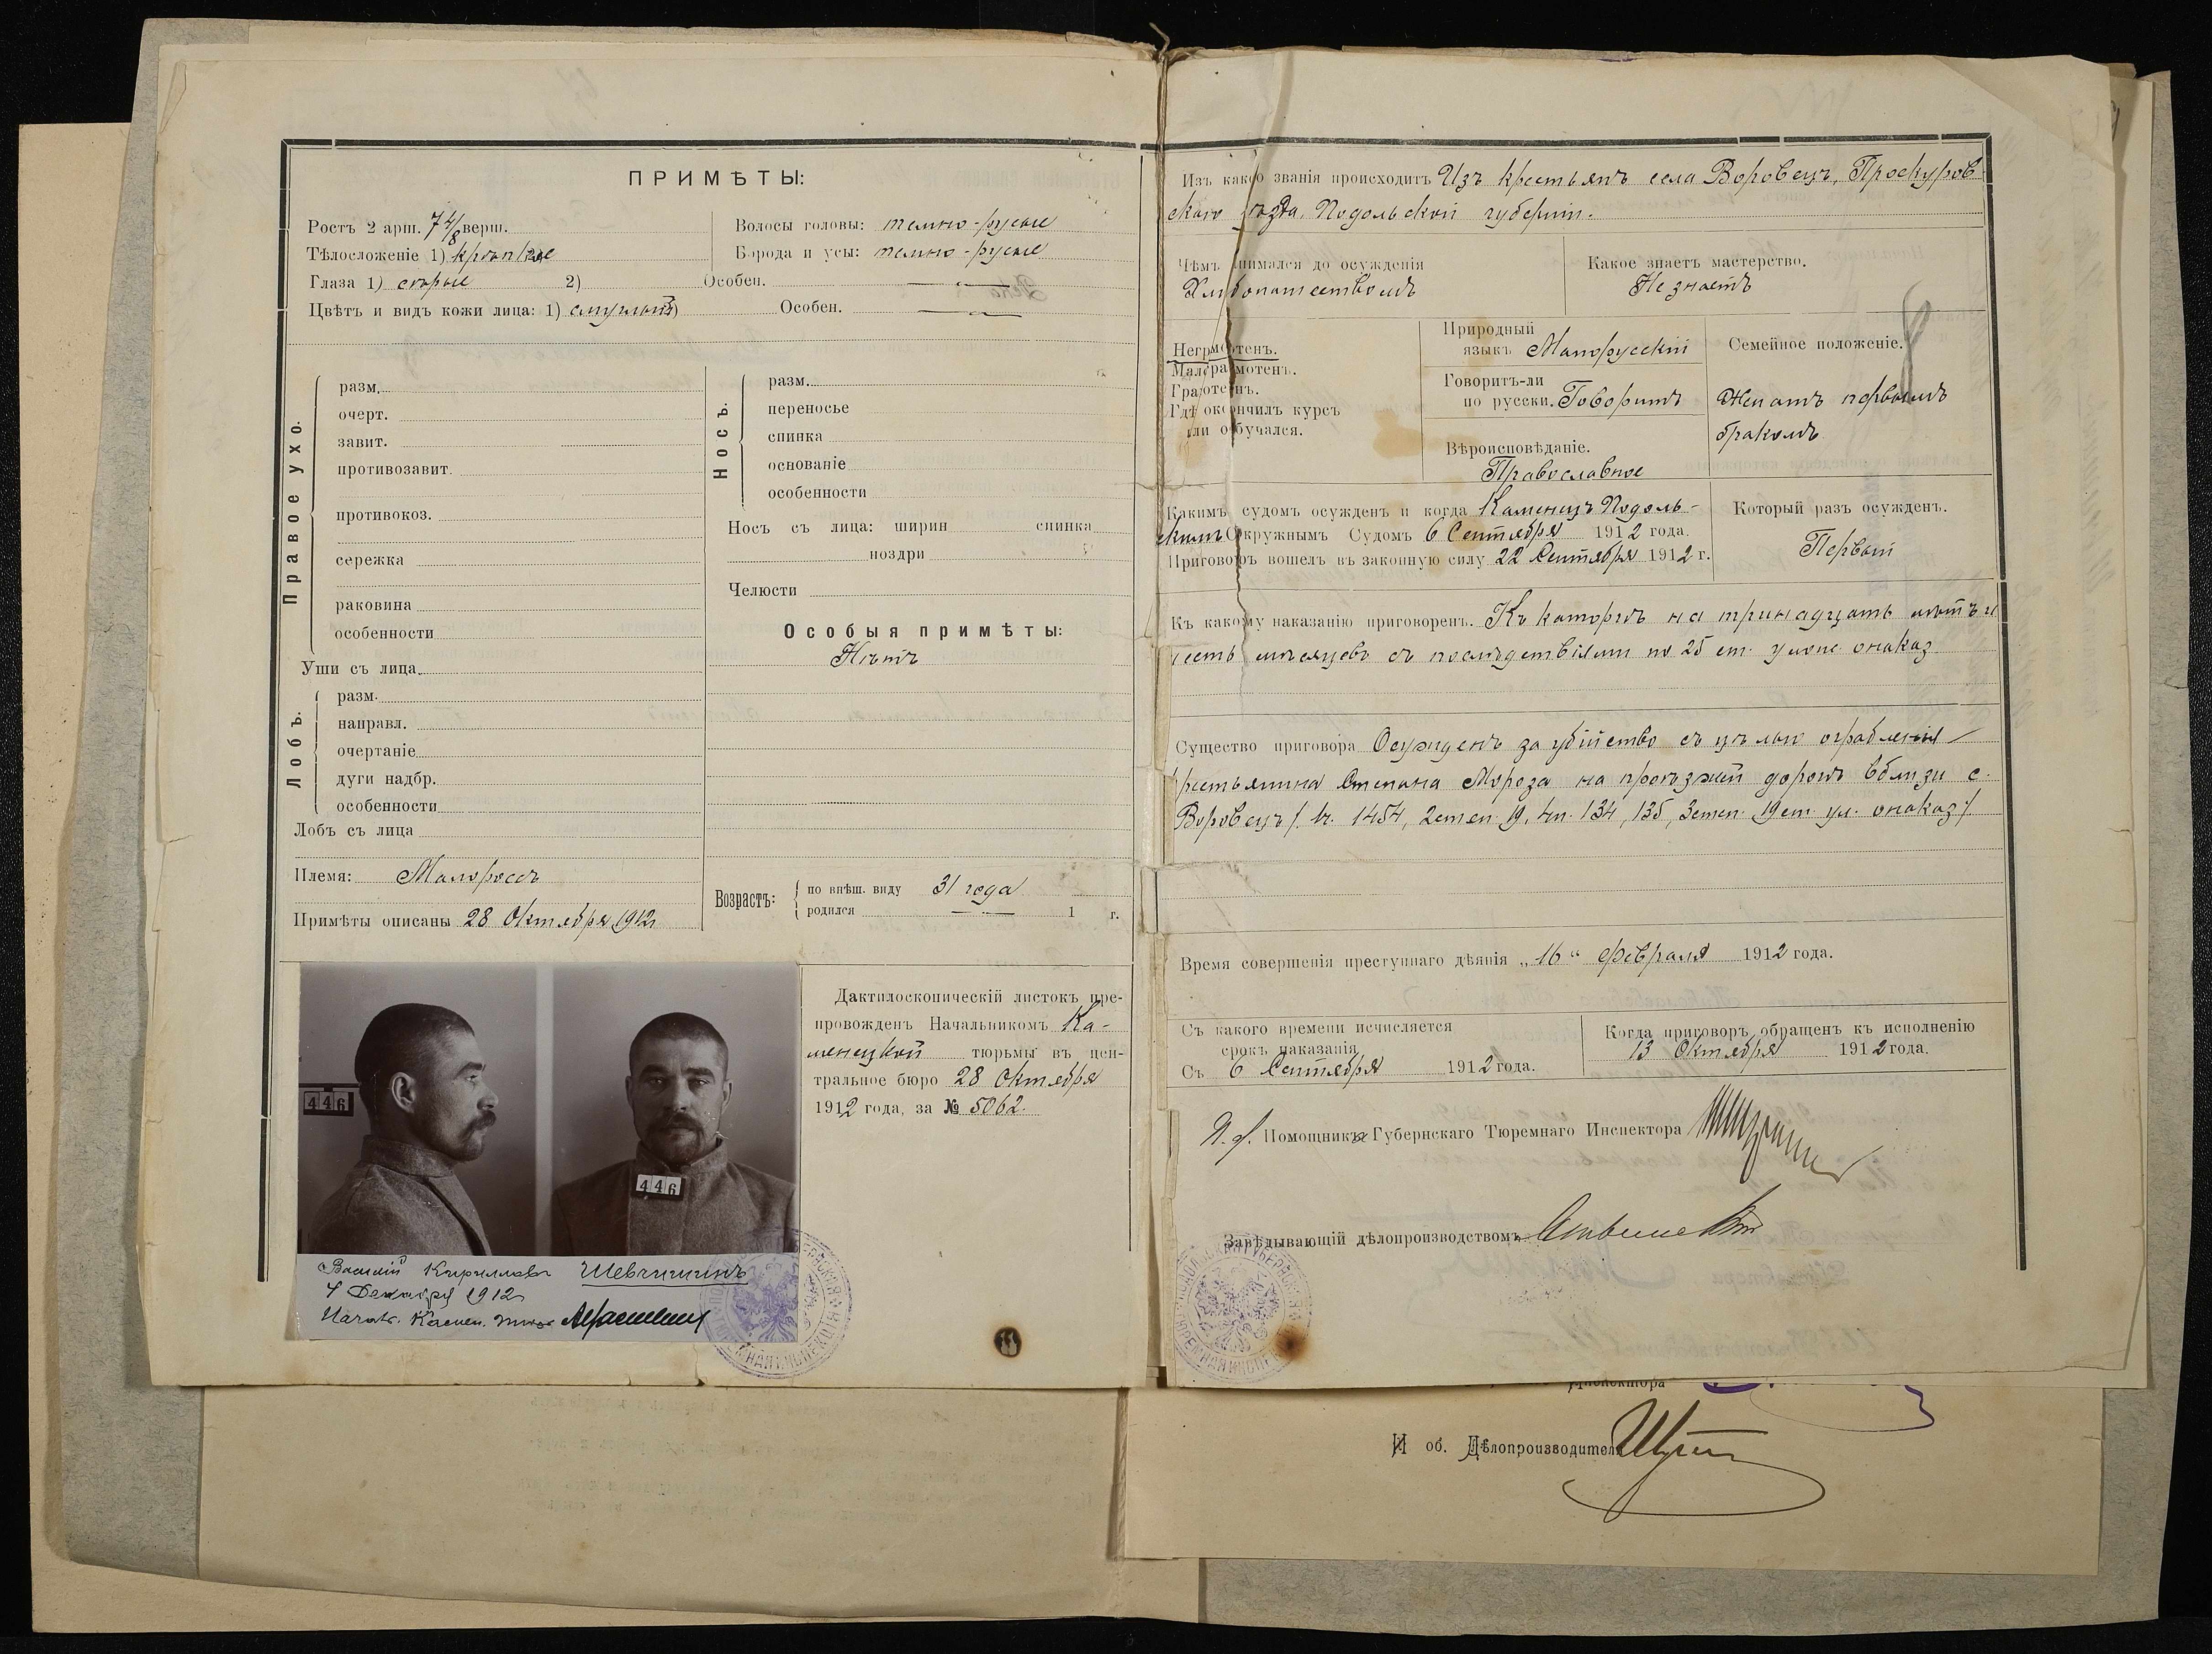 ПРИМѢТЫ:
Ростъ 2 арш. 7 4/8 верш.
Тѣлосложеніе 1) крѣпкое
Глаза 1) сѣрые 2) Особен. —
Цвѣтъ и видъ кожи лица: 1) смуглый 2) Особен. —
Волосы головы: темно-русые
Борода и усы: темно-русые
Правое ухо.
разм.
очерт.
завит.
противозавит.
противокоз.
сережка
раковина
особенности
Уши съ лица
Лобъ.
разм.
направл.
очертаніе
дуги надбр.
особенности
Лобъ съ лица
Племя: Малороссъ
Примѣты описаны 28 Октября 1912
Носъ.
разм.
переносье
спинка
основаніе
особенности
Носъ съ лица: ширин спинка
ноздри
Челюсти
Особыя примѣты:
Нѣтъ
Возрастъ:
по внѣш. виду 31 года
родился — — 1 г.
446
446
Василій Кириллов Шевчишинъ
4 Декабря 1912
Начал. Камен. тюр.
Дактилоскопическій листокъ пре-
провожденъ Начальникомъ Ка-
менецкой тюрьмы въ цен-
тральное бюро 28 Октября
1912 года, за № 5062.
Изъ какого званія происходитъ Изъ крестьянъ села Воровецъ, Проскуров
скаго уѣзда, Подольской губерніи.
Чѣмъ занимался до осужденія
Хлѣбопашествомъ
Какое знаетъ мастерство.
Не знаетъ
Неграмотенъ.
Малограмотенъ.
Грамотенъ.
Гдѣ окончилъ курсъ
или обучался.
Природный
языкъ Малорусскій
Говоритъ-ли
по русски. Говоритъ
Вѣроисповѣданіе.
Православное
Семейное положеніе.
Женатъ первымъ
бракомъ
Какимъ судомъ осужденъ и когда Каменецъ Подоль-
скимъ Окружнымъ Судомъ 6 Сентября 1912 года.
Приговоръ вошелъ въ законную силу 22 Сентября 1912 г.
Который разъ осужденъ.
Первый
Къ какому наказанію приговоренъ. Къ каторгѣ на тринадцать лѣтъ и
шесть мѣсяцевъ съ послѣдствіями по 25 ст. улож. о наказ.
Существо приговора Осужденъ за убійство съ цѣлью ограбленія
крестьянина Степана Мороза на проѣзжей дорогѣ вблизи с.
Воровецъ /. ч. 1454, 2 степ. 19, 4 п. 134, 135, 3 степ. 19 ст. ул. о наказ /.
Время совершенія преступнаго дѣянія „16“ февраля 1912 года.
Съ какого времени исчисляется
срокъ наказанія
Съ 6 Сентября 1912 года.
Когда приговоръ обращенъ къ исполненію
13 Октября 1912 года.
И. об. Помощника Губернскаго Тюремнаго Инспектора
Завѣдывающій дѣлопроизводствомъ
Инспектора
И об. Дѣлопроизводителя